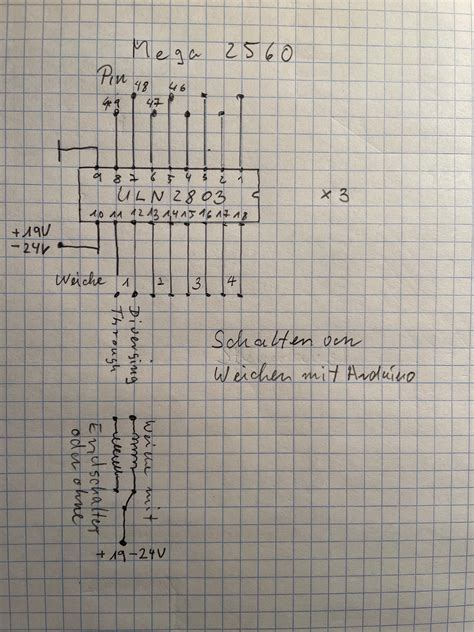 Mega 2560
Pin 49 48 47 46
9 8 7 6 5 4 3 2 1
ULN2803
10 11 12 13 14 15 16 17 18
x 3
+19V
-24V
Weiche 1 2 3 4
Through
Diverging
Schalten von
Weichen mit Arduino
Weiche mit
Endschalter
oder ohne
+19-24V